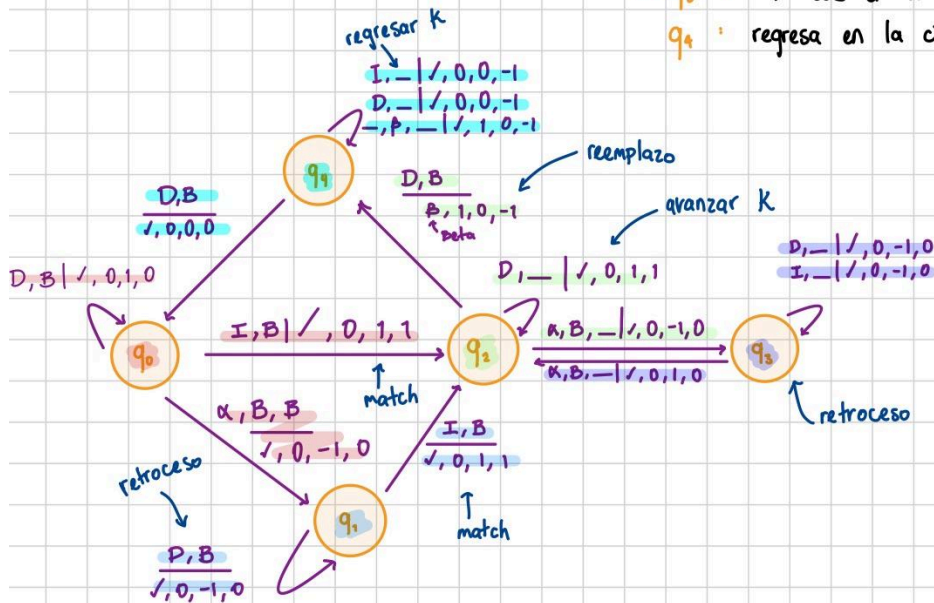 q₄ : regresa en la c
regresar K
I, _ | ✓, 0, 0, -1
D, _ | ✓, 0, 0, -1
_, β, _ | ✓, 1, 0, -1
q₄
D, B
✓, 0, 0, 0
D, B
β, 1, 0, -1
Beta
reemplazo
avanzar K
D, _ | ✓, 0, 1, 1
D, _ | ✓, 0, -1, 0
I, _ | ✓, 0, -1, 0
D, B | ✓, 0, 1, 0
q₀
I, B | ✓, 0, 1, 1
match
q₂
α, B, _ | ✓, 0, -1, 0
α, B, _ | ✓, 0, 1, 0
q₃
retroceso
α, B, B
✓, 0, -1, 0
I, B
✓, 0, 1, 1
match
retroceso
q₁
D, B
✓, 0, -1, 0